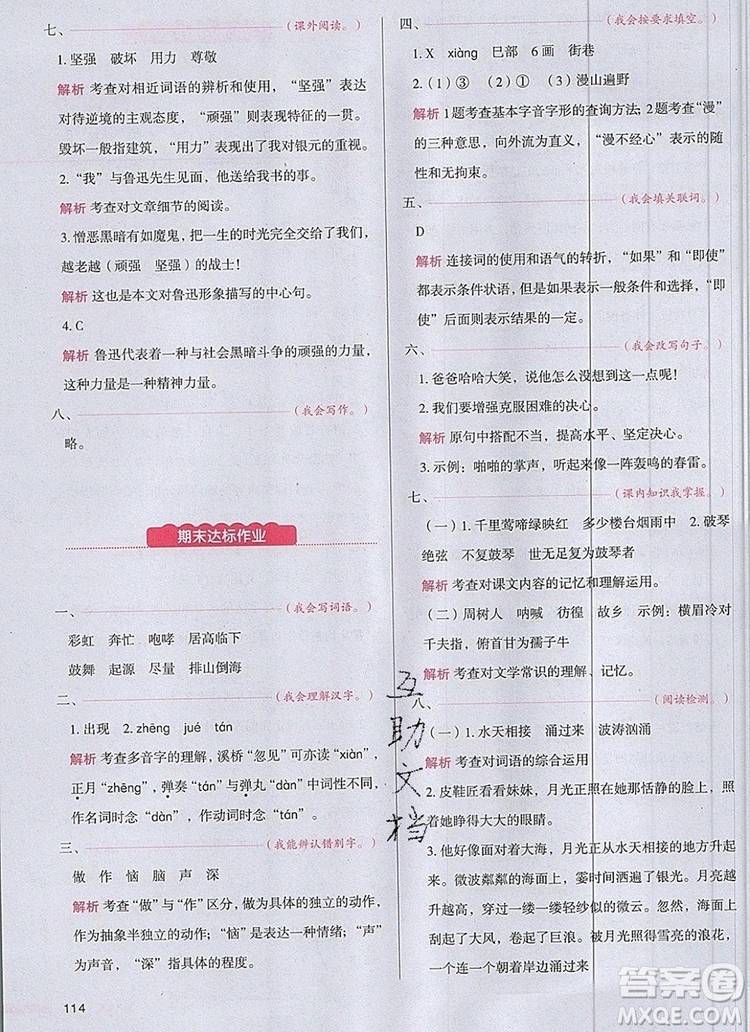 七、（课外阅读。）
1. 坚强　破坏　用力　尊敬
解析 考查对相近词语的辨析和使用，“坚强”表达
对待逆境的主观态度，“顽强”则表现传统的一贯。
毁坏一般指建筑，“用力”写出了我对银元的重视。
2.“我”与鲁迅先生见面，他送给我书的事。
解析 考查对文章细节的阅读。
3. 憎恶黑暗有如魔鬼，把一生的时光完全交给了我们，
越老越（顽强　坚强）的战士！
解析 这也是本文对鲁迅形象描写的中心句。
4. C
解析 鲁迅代表着一种与社会黑暗斗争的顽强的力量，
这种力量是一种精神力量。
八、（我会写作。）
略。
期末达标作业
一、（我会写词语。）
彩虹　奔忙　咆哮　居高临下
鼓舞　起源　尽量　排山倒海
二、（我会理解汉字。）
1. 出现　2. zhēng　jué　tán
解析 考查多音字的理解，溪桥“忽见”可亦读“xiàn”，
正月“zhēng”，弹奏“tán”与弹丸“dàn”中词性不同，
作名词时念“dàn”，作动词时念“tán”。
三、（我能辨认错别字。）
做　作　恼　脑　声　深
解析 考查“做”与“作”区分，做为具体的独立的动作，
作为抽象半独立的动作，“恼”是表达一种情绪；“声”
为声音，“深”指具体的程度。
114
四、（我会按要求填空。）
1. X　xiàng　巳部　6 画　街巷
2.（1）③　①　（2）②　（3）漫山遍野
解析 1题考查基本字音字形的查询方法；2题考查“漫”
的三种意思，向外流为満溢，“漫不经心”表示的是随意
和无拘束。
五、（我会填关联词。）
D
解析 连接词的使用和语气的转折，“如果”和“即使”
都表示条件状语，但是表示一般条件和选择，“即
使”后面表示结果的一定。
六、（我会改写句子。）
1. 爸爸哈哈大笑，说他怎么没想到这一点呢！
2. 我们要增强克服困难的决心。
解析 原句中搭配不当，提高水平、坚定决心。
3. 示例：啪啪的掌声，好像一阵轰鸣的春雷。
七、（课内知识我掌握。）
（一）1. 千里莺啼绿映红　多少楼台烟雨中　2. 破琴
绝弦　不复鼓琴　世无足复为鼓琴者
解析 考查对课文内容的记忆和理解运用。
（二）周树人　呐喊　彷徨　故乡　示例：横眉冷对
千夫指，俯首甘为孺子牛
解析 考查对文学常识的理解、记忆。
八、（阅读检测。）
（一）1. 水天相接　涌过来　波涛汹涌
解析 考查对词语的综合运用
2. 皮鞋匠看看妹妹，月光正照在她那恬静的脸上，照
着她睁得大大的眼睛。
3. 他好像面对着大海，月光正从水天相接的地方升起
来。微波粼粼的海面上，霎时间洒遍了银光。月亮越
升越高，穿过一缕一缕轻纱似的微云。忽然，海面上
刮起了大风，卷起了巨浪。被月光照得雪亮的浪花，
一个连一个朝着岸边涌过来
互助文档
答案圈
MXQE.COM